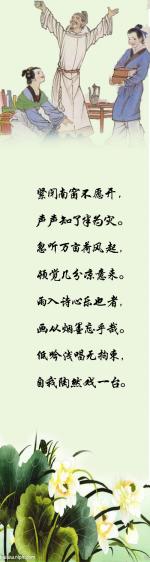 紧闭南窗不愿开，
声声知了惹为灾。
忽听万亩荷风起，
领觉几分凉意来。
雨入诗心乐也者，
画从烟墨忘乎我。
低吟浅唱无拘束，
自我陶然戏一台。